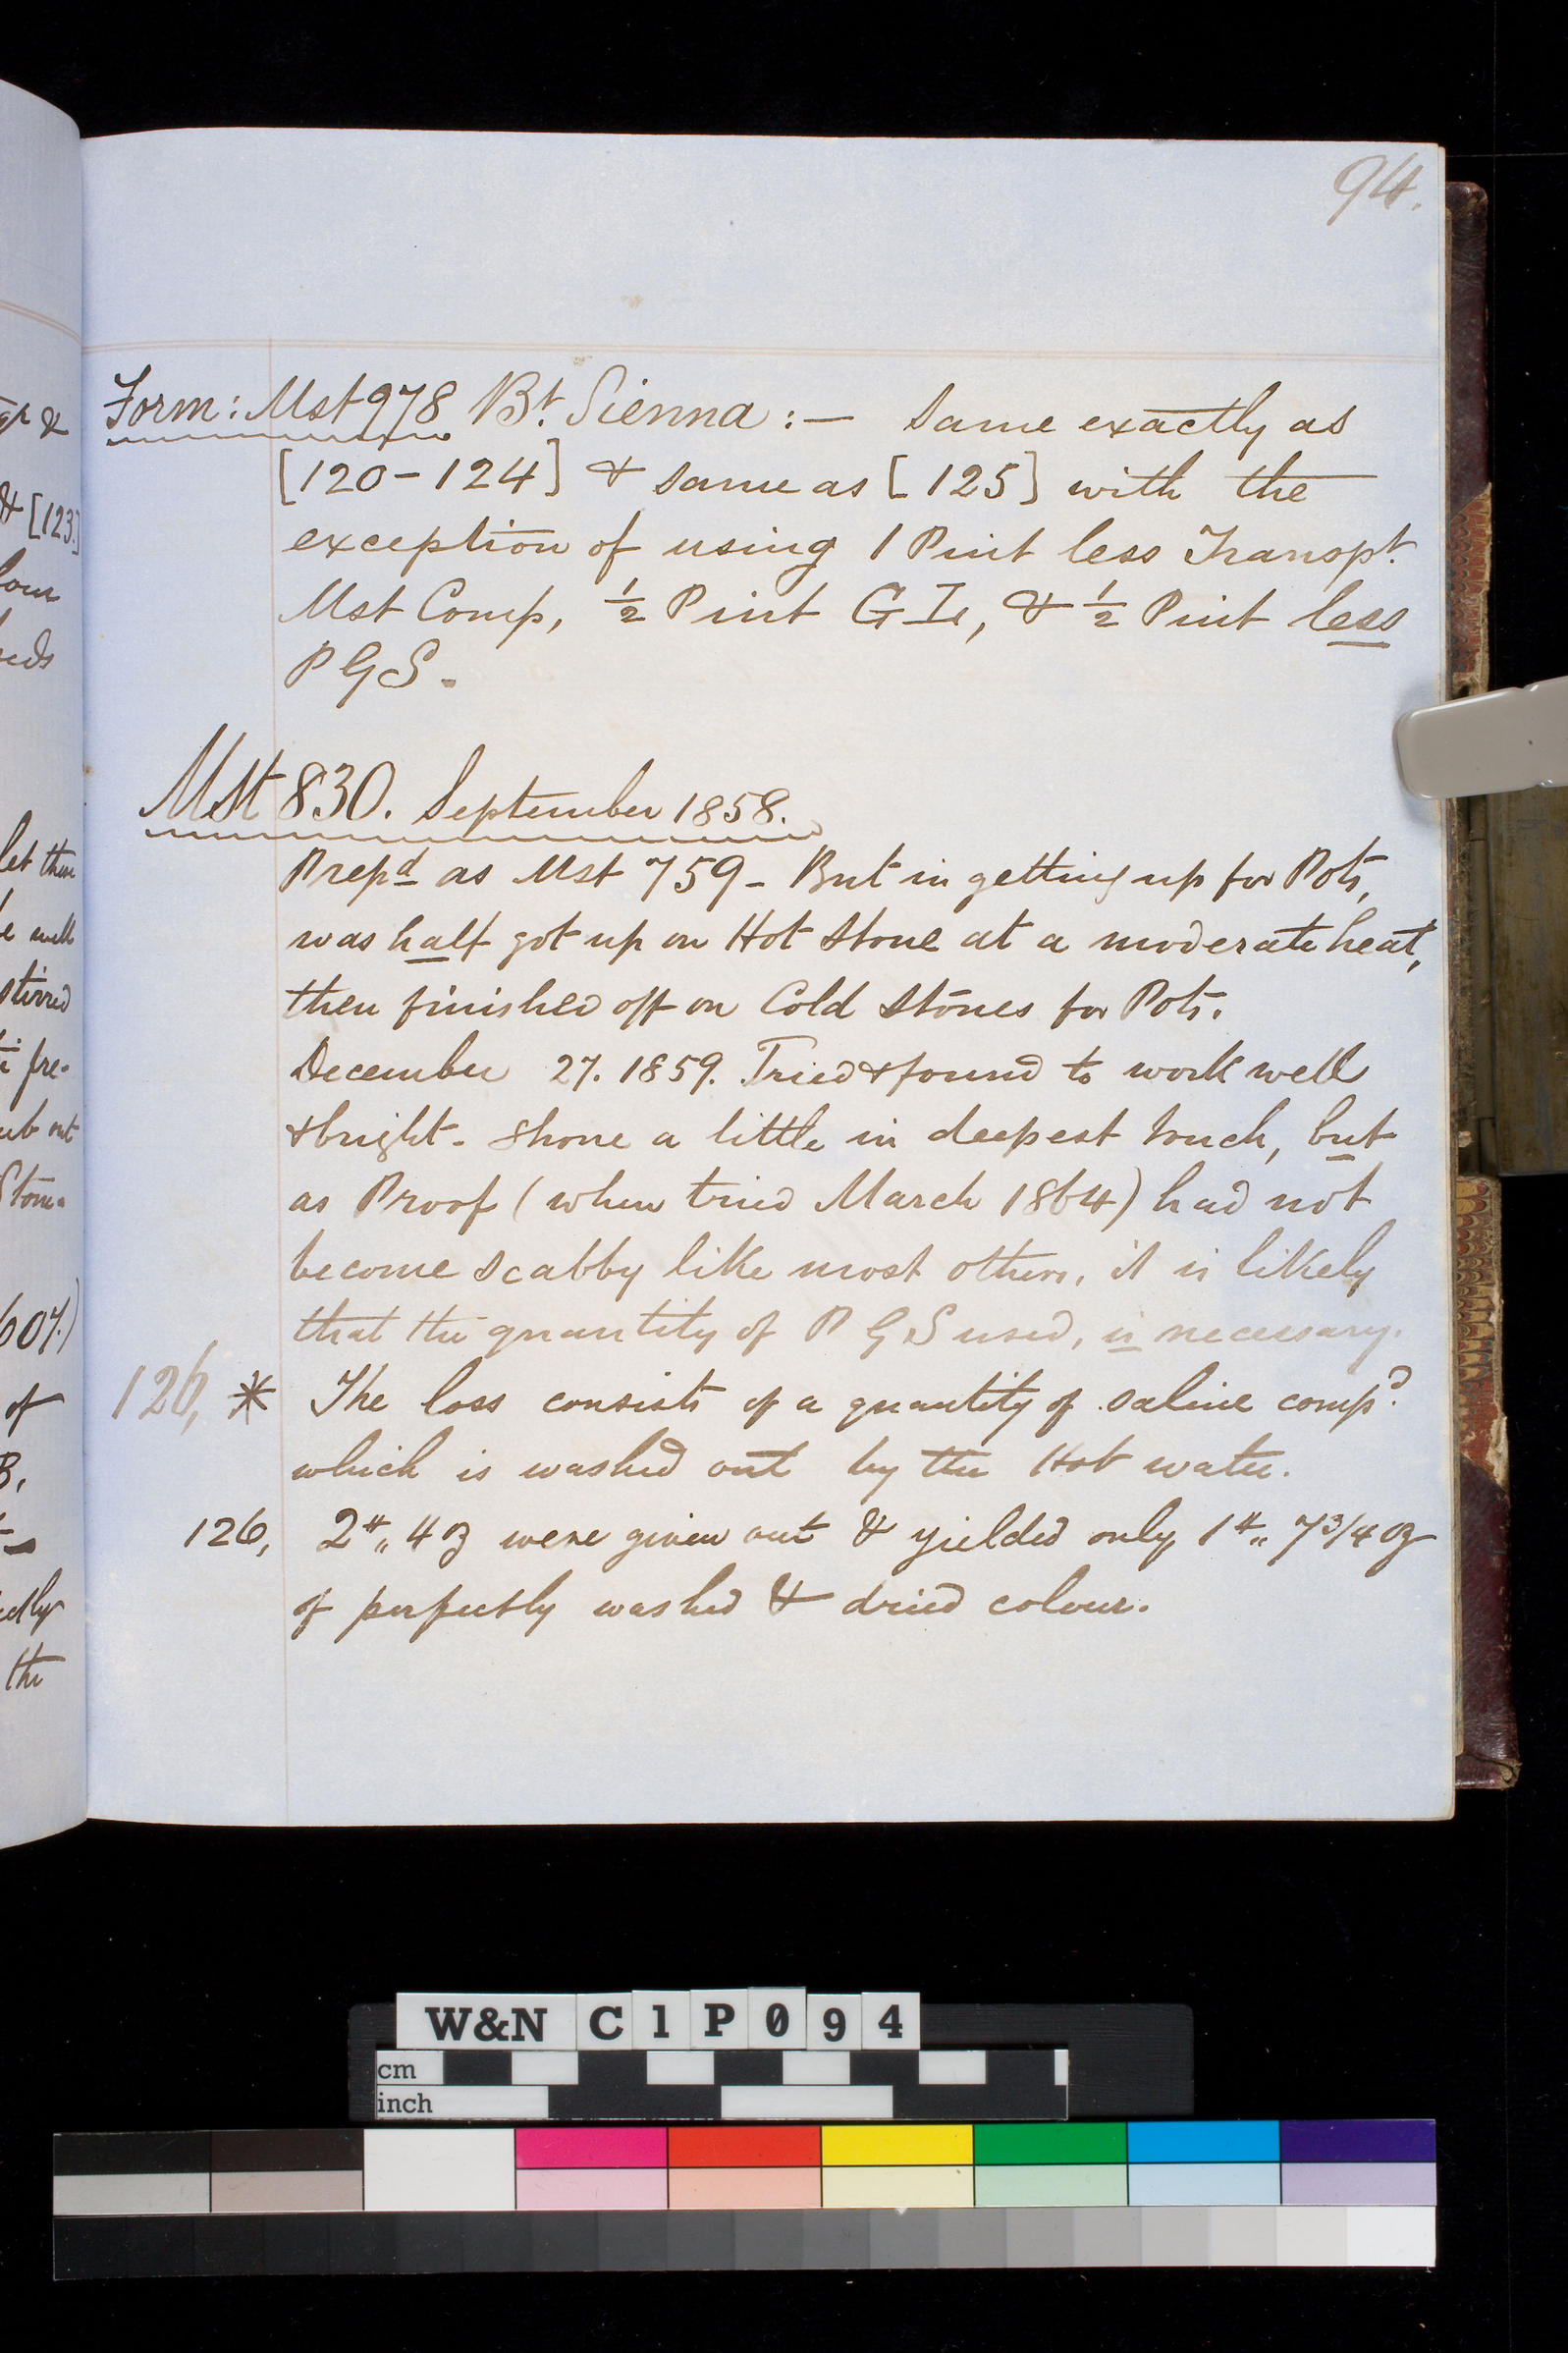 94.
Form: Mst 978 Bt. Sienna :— Same exactly as
[120-124] & same as [125] with the
exception of using 1 Pint less Transpt.
Mst Comp, ½ Pint G I, & ½ Pint less
P G S.
Mst 830. September 1858.
Prepd as Mst 759 - But in getting up for Pots,
was half got up on Hot Stone at a moderate heat,
then finished off on Cold Stones for Pots.
December 27. 1859. Tried & found to work well
& bright. Shone a little in deepest touch, but
as Proof (when tried March 1864) had not
become scabby like most others, it is likely
that the quantity of P G S used, is necessary.
126, * The loss consists of a quantity of saline compd.
which is washed out by the Hot water.
126, 2#,, 4 oz were given out & yielded only 1#,, 7 3/4 oz
of perfectly washed & dried colour.
& [123.]
let them
stirred
pre-
607.)
of
B,
the
W&N C1P094
cm
inch